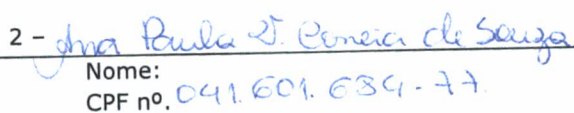 2 - Ana Paula V. Correia de Souza
Nome:
CPF nº. 041.601.684-77